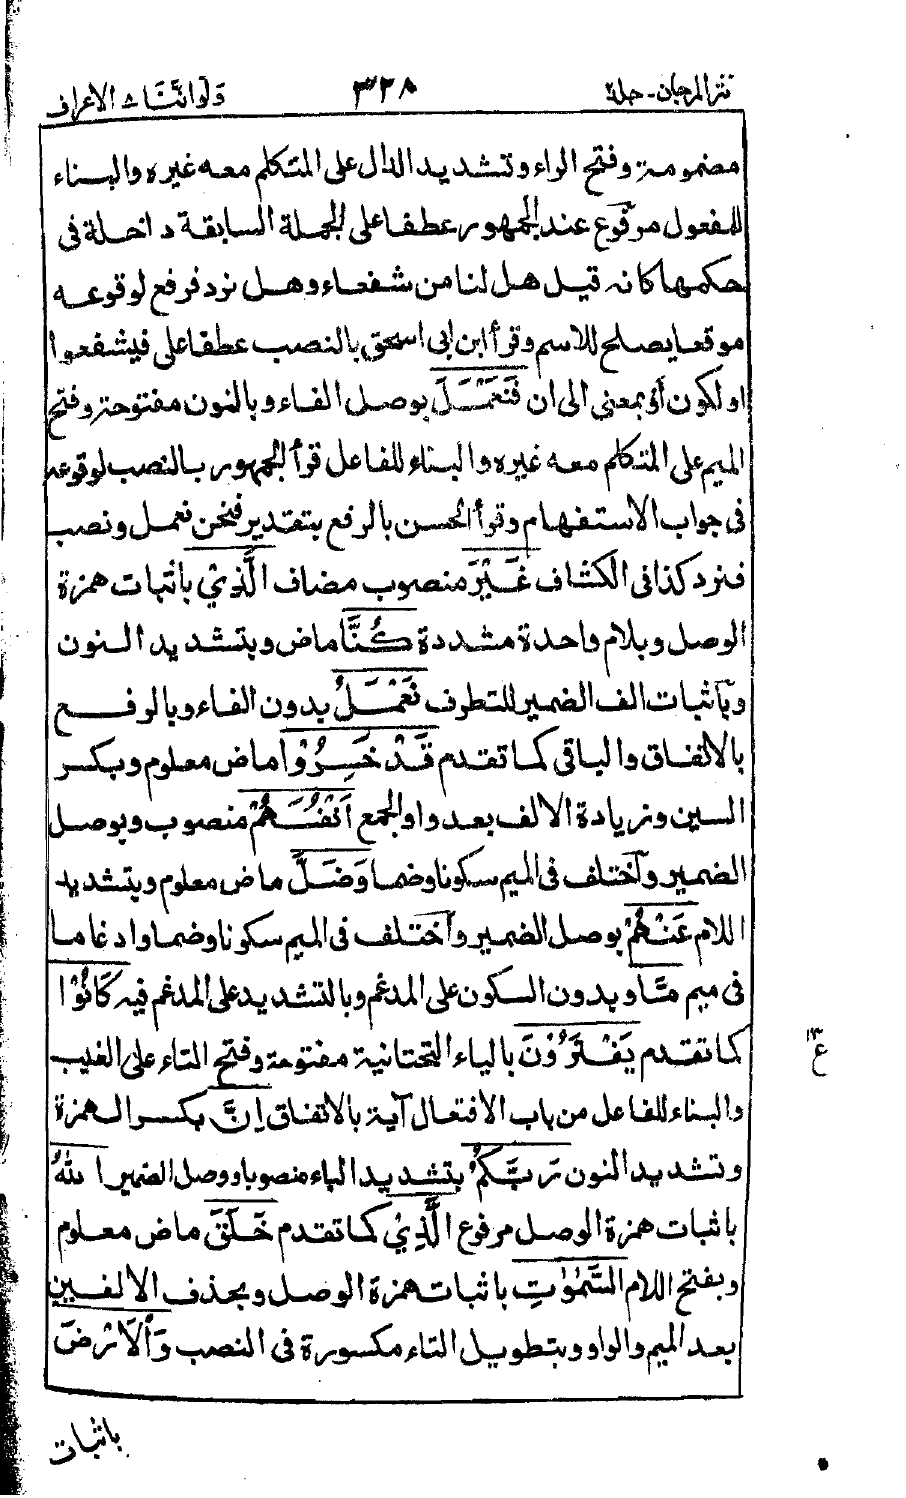 نثر المرجان - جلد٢ ٣٣٨ ولو اننا ـ الاعراف
مضمومة وفتح الراء وتشديد الدال على المتكلم معه غيره والبناء
للمفعول مرفوع عند الجمهور عطفا على الجملة السابقة داخلة في
حكمها كانه قيل هل لنا من شفعاء وهل نرد فرفع لوقوعه
موقعا يصلح للاسم وقرأ ابن ابى اسحق بالنصب عطفا على فيشفعوا
او لكون أو بمعنى الى ان فَنَعْمَلَ بوصل الفاء وبالنون مفتوحة وفتح
الميم على المتكلم معه غيره والبناء للفاعل قرأ الجمهور بالنصب لوقوعه
في جواب الاستفهام وقرأ الحسن بالرفع بتقدير فنحن نعمل ونصب
فنرد كذا في الكشاف غَيْرَ منصوب مضاف الَّذِيْ باثبات همزة
الوصل وبلام واحدة مشددة كُنَّا ماض وبتشديد النون
وباثبات الف الضمير للتطرف نَعْمَلُ بدون الفاء وبالرفع
بالاتفاق والباقي كما تقدم قَدْ خَسِرُوْا ماض معلوم وبكسر
السين وزيادة الالف بعد واو الجمع اَنْفُسَهُمْ منصوب وبوصل
الضمير واختلف في الميم سكونا وضما وَضَلَّ ماض معلوم وبتشديد
اللام عَنْهُمْ بوصل الضمير واختلف في الميم سكونا وضما وادغاما
في ميم مَّا وبدون السكون على المدغم وبالتشديد على المدغم فيه كَانُوْا
كما تقدم يَفْتَرُوْنَ بالياء التحتانية مفتوحة وفتح التاء على الغيب
والبناء للفاعل من باب الافتعال آية بالاتفاق اِنَّ بكسر الهمزة
وتشديد النون رَبَّكُمُ بتشديد الباء منصوبا ووصل الضمير اللهُ
باثبات همزة الوصل مرفوع الَّذِيْ كما تقدم خَلَقَ ماض معلوم
وبفتح اللام السَّمٰوٰتِ باثبات همزة الوصل وبحذف الالفين
بعد الميم والواو وبتطويل التاء مكسورة في النصب وَالْاَرْضَ
باثبات
١٣
ع